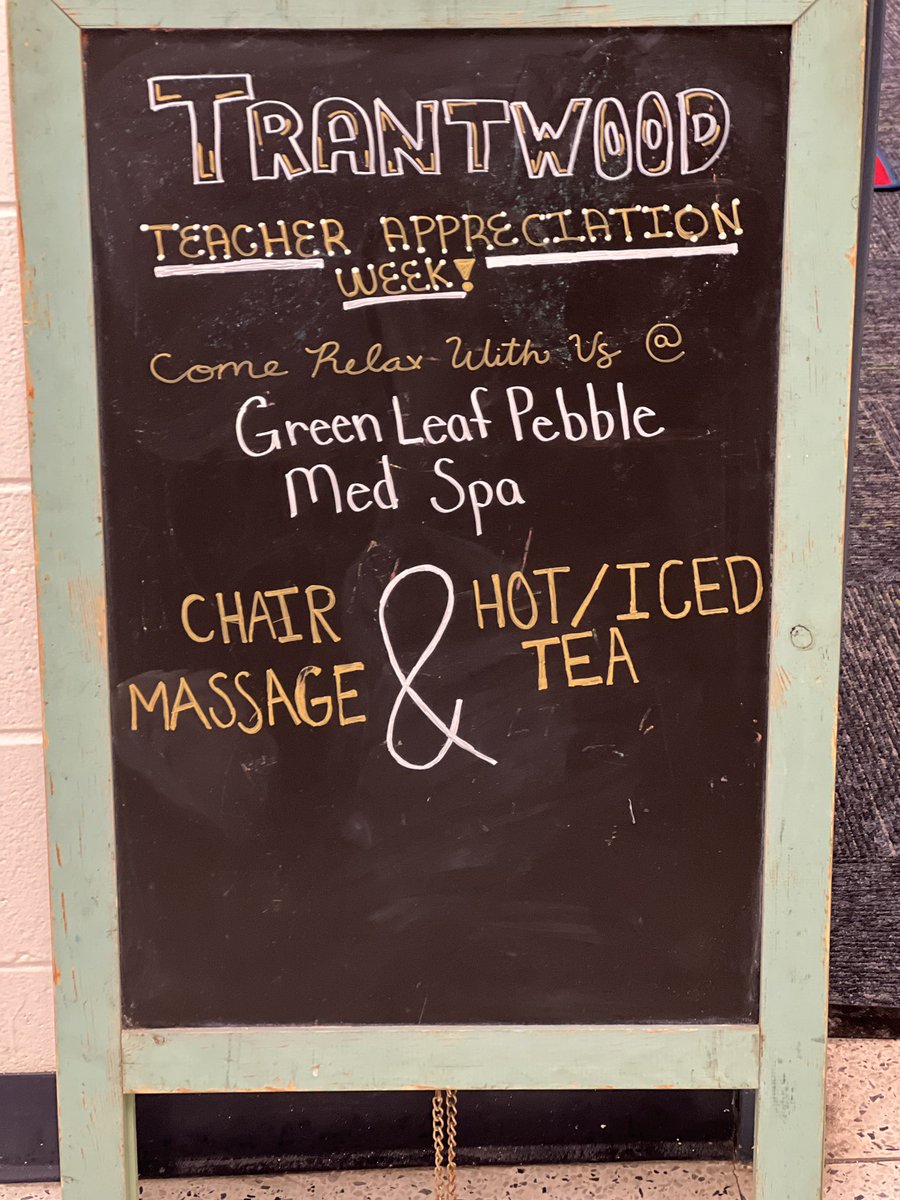 TRANTWOOD
TEACHER APPRECIATION
WEEK!
Come Relax With Us @
Green Leaf Pebble
Med Spa
CHAIR
MASSAGE
&
HOT/ICED
TEA